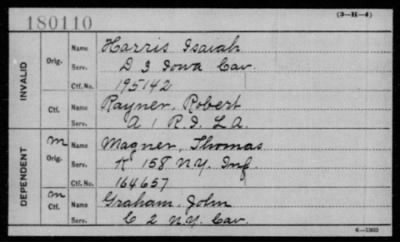 180110
(3-H-4)
INVALID
Orig.
Name Harris Isaiah
Serv. D 3 Iowa Cav.
Ctf. No. 195142
Ctf.
Name Rayner, Robert
Serv. A 1 R.I. L.A.
DEPENDENT
M
Orig.
Name Magner, Thomas
Serv. K 158 N.Y. Inf
Ctf. No. 164657
m
Ctf.
Name Graham, John
Serv. C 2 N.Y. Cav.